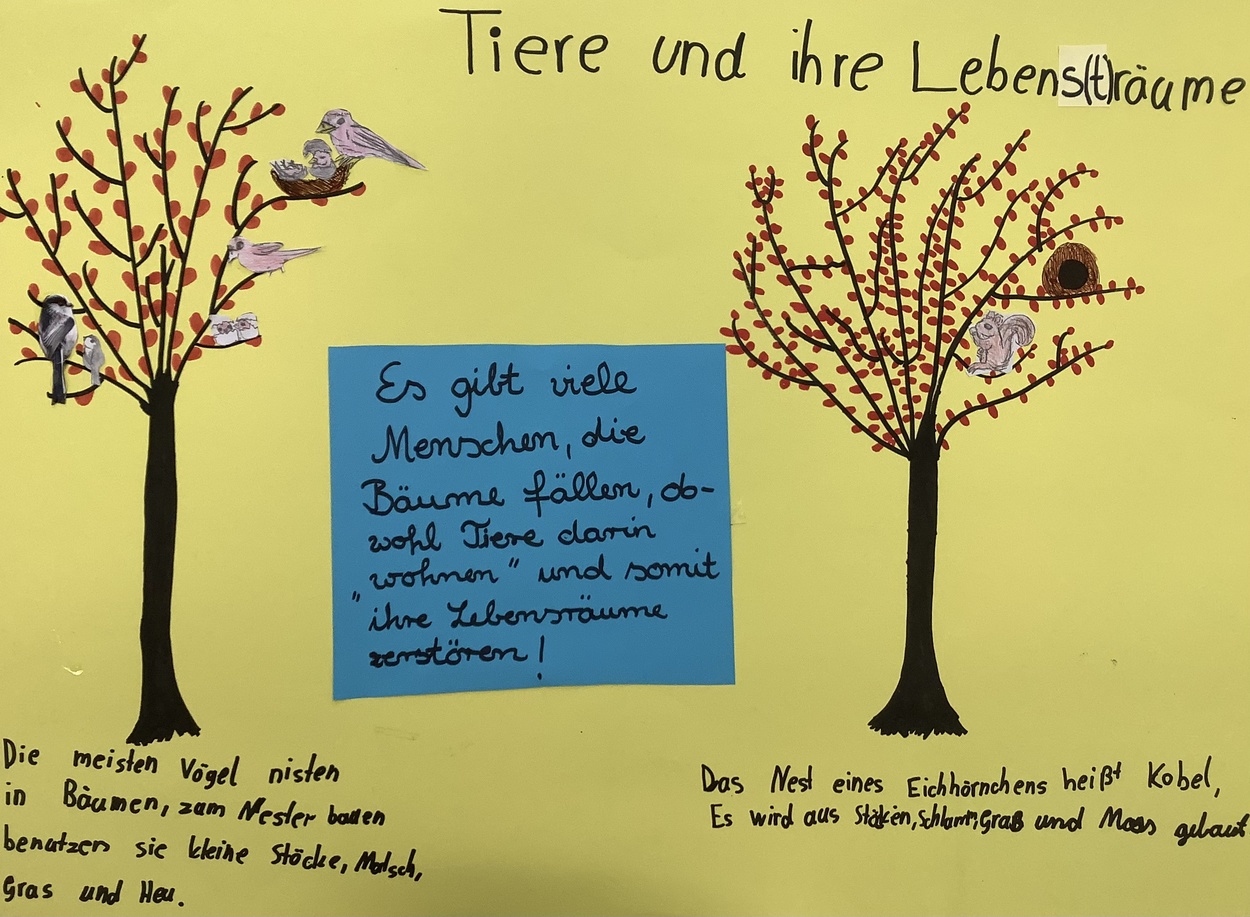 Tiere und ihre Lebens(t)räume
Es gibt viele
Menschen, die
Bäume fällen, ob-
wohl Tiere darin
„wohnen" und somit
ihre Lebensräume
zerstören!
Die meisten Vögel nisten
in Bäumen, zum Nester bauen
benutzen sie kleine Stöcke, Matsch,
Gras und Heu.
Das Nest eines Eichhörnchens heißt Kobel,
Es wird aus Stöcken, Schlamm, Graß und Moos gebaut